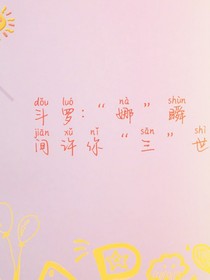 dòu luó nà shùn
斗罗：“娜”瞬
jiān xǔ nǐ sān shì
间许你“三”世